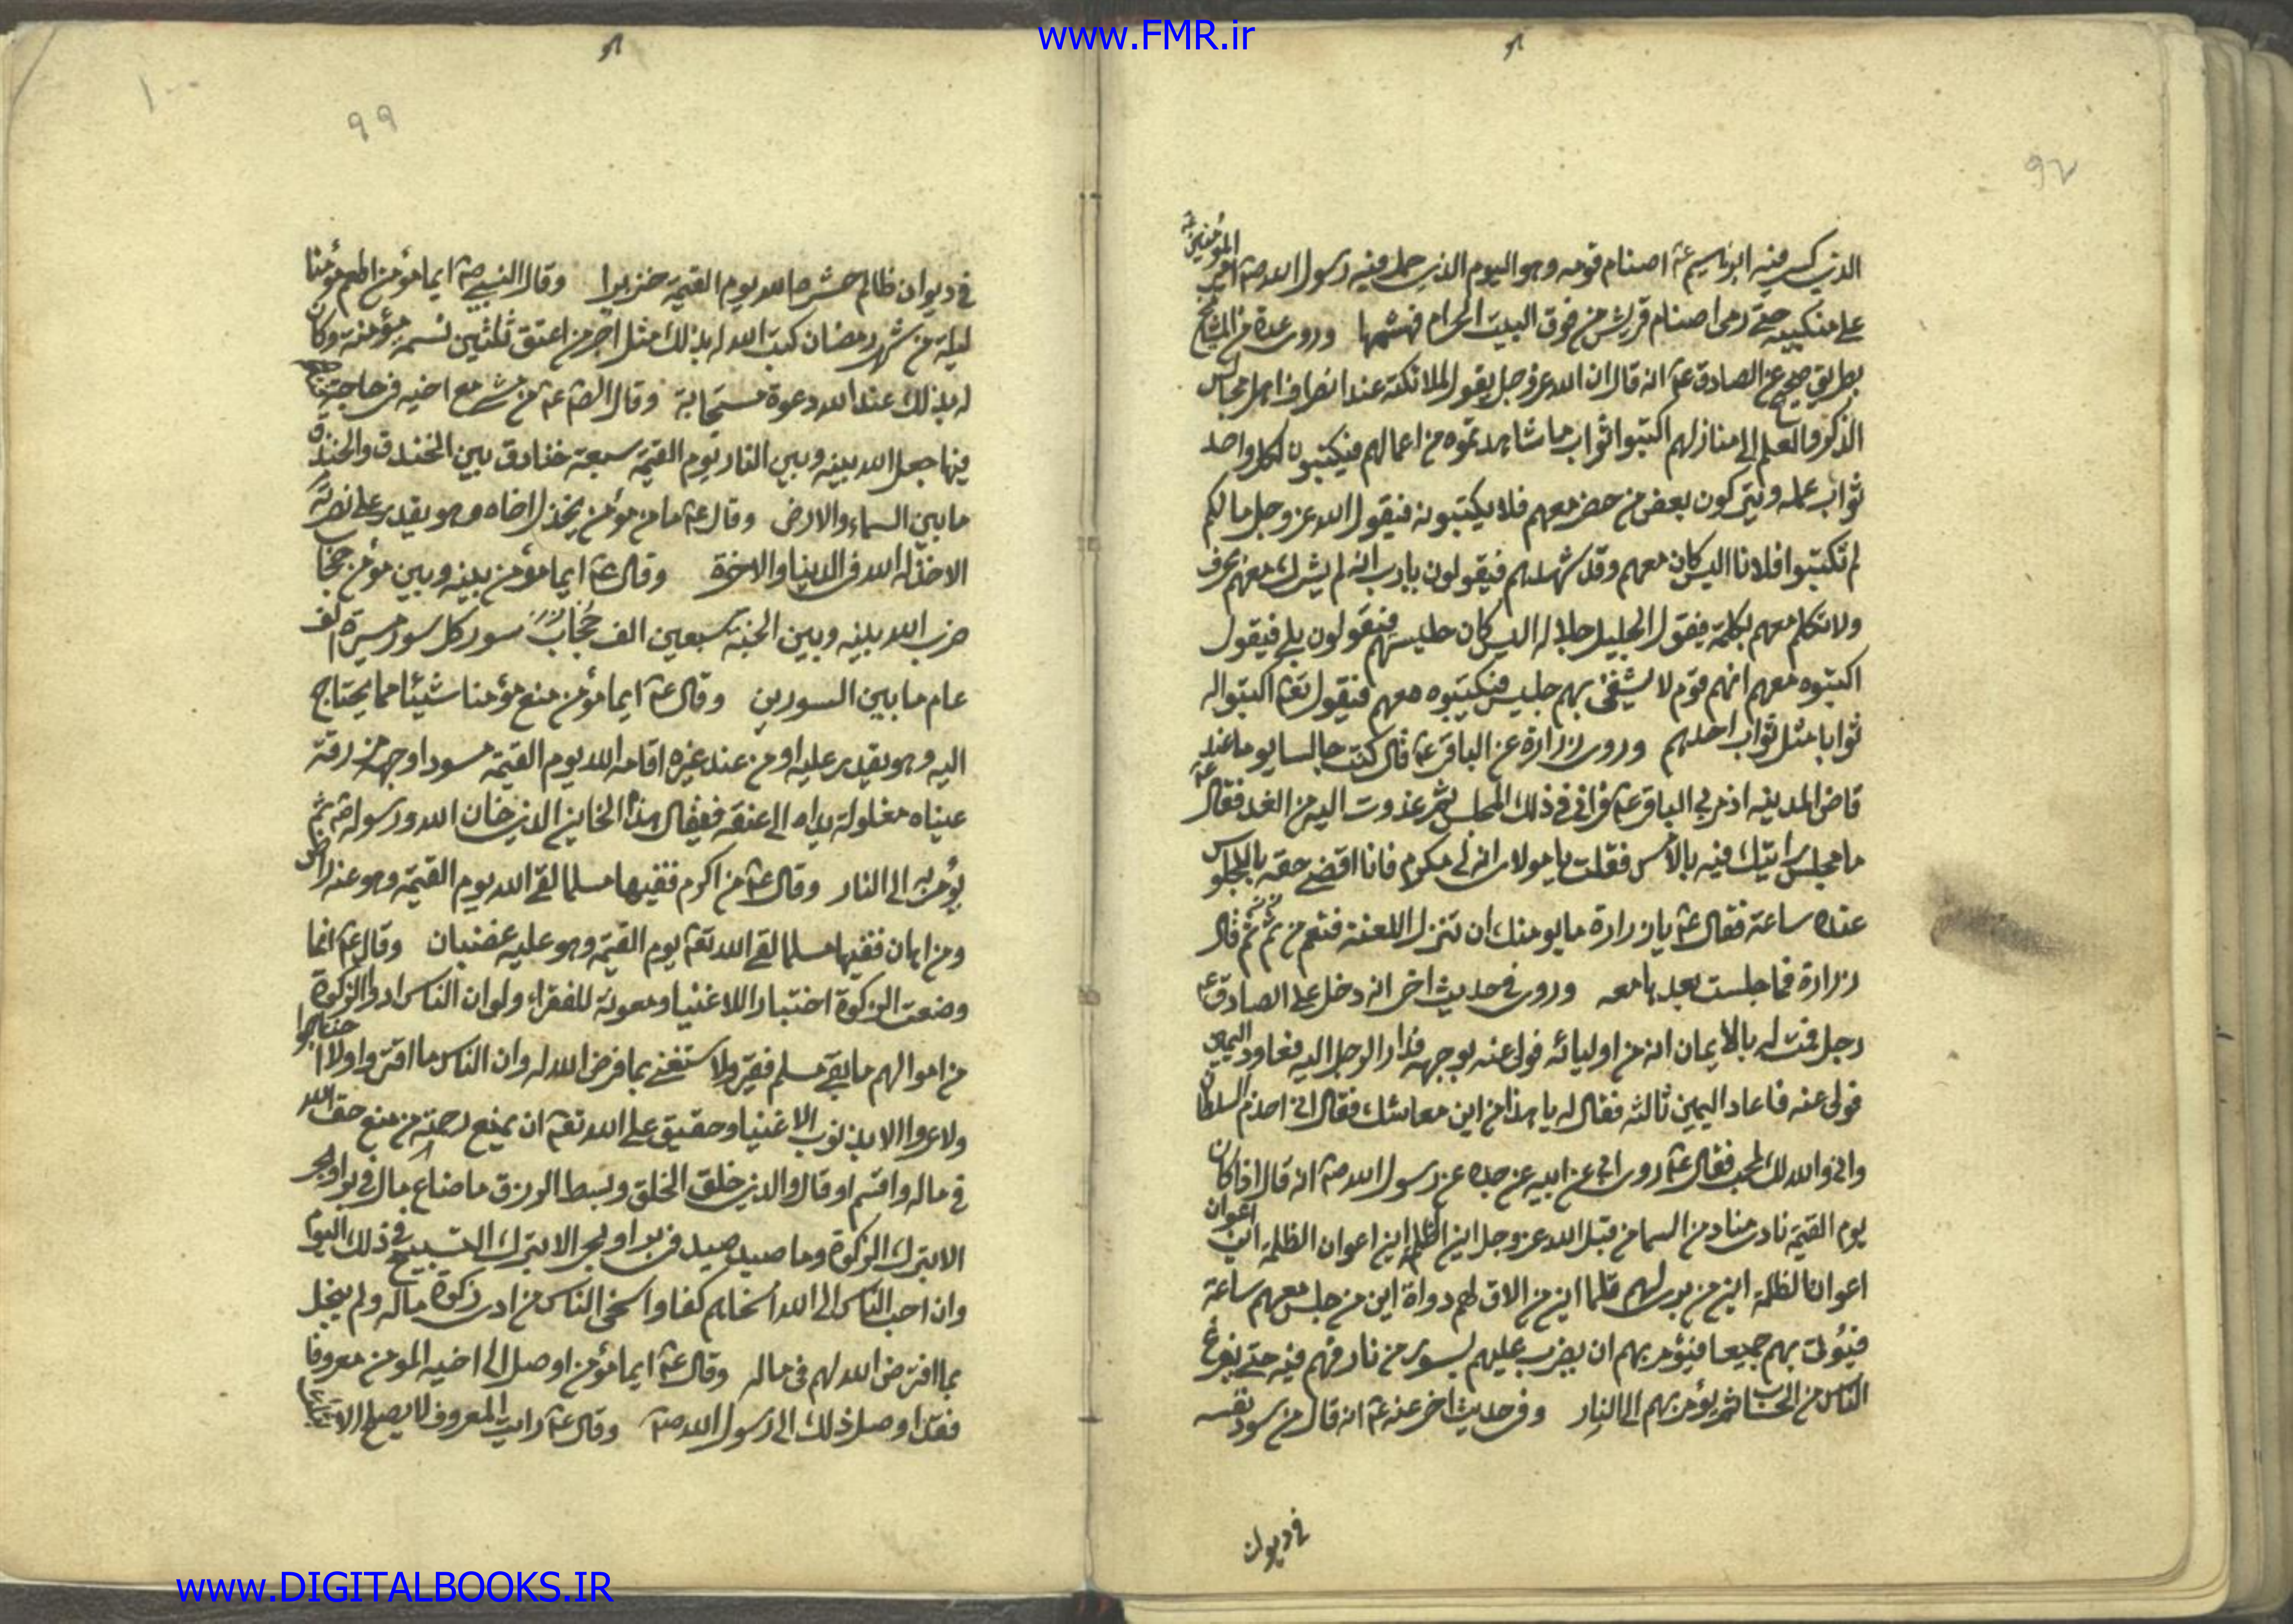 www.FMR.ir
٩٨
الذي كسر فيه ابرهيم عم اصنام قومه وهو اليوم الذي حمل فيه رسول الله صم امير المؤمنين عم
على منكبيه حتى رمى اصنام قريش من فوق البيت الحرام فهشمها وروى عدة من المشايخ
بطريق صحيح عن الصادق عم انه قال ان الله عز وجل يقول للملائكة عند انصراف اهل مجالس
الذكر والعلم الى منازلهم اكتبوا ثواب ما شاهدتموه من اعمالهم فيكتبون لكل واحد
ثواب عمله ويتركون بعض من حضر معهم فلا يكتبونه فيقول الله عز وجل ما لكم
لم تكتبوا فلانا اليس كان معهم وقد شهدهم فيقولون يا رب انه لم يشرك معهم بحرف
ولا تكلم معهم بكلمة فيقول الجليل جلاله اليس كان جليسهم فيقولون بلى فيقول
اكتبوه معهم انهم قوم لا يشقى بهم جليس فيكتبوه معهم فيقول تعم اكتبوا له
ثوابا مثل ثواب احدهم وروى زرارة عن الباقر عم قال كنت جالسا يوما عند
قاضي المدينه اذ مر بي الباقر عم فراني في ذلك المجلس ثم غدوت اليه من الغد فقال عم
ما مجلس رايتك فيه بالامس فقلت يا مولاي انه لي مكرم فانا اقضى حقه بالجلوس
عنده ساعة فقال عم يا زرارة ما يومنك ان تنزل اللعنة فتعم من ثم ثم قال
زرارة فما جلست بعدها معه وروى في حديث اخر انه دخل على الصادق عم
رجل فمت له بالايمان انه من اوليائه فولى عنه بوجهه فدار الرجل اليه فعاود اليمين
فولى عنه فاعاد اليمين ثالثة فقال له يا هذا من اين معاشك فقال اني اخدم السلطان
واني والله لك لمحب فقال عم روى ابي عن ابيه عن جده عن رسول الله صم انه قال اذا كان
يوم القيمة نادى مناد من السما من قبل الله عز وجل اين الظلمه اين اعوان الظلمه اين اعوان
اعوان الظلمة اين من برى لهم قلما اين من الاق لهم دواة اين من جلس معهم ساعة
فيؤتى بهم جميعا فيؤمر بهم ان يضرب عليهم بسور من نار فهم فيه حتى يفرغ
الناس من الحساب ثم يؤمر بهم الى النار وفي حديث اخر عنه عم انه قال من سود نفسه
في ديوان
١٠٠
٩٩
في ديوان ظالم حشره الله يوم القيمة خنزيرا وقال النبي صم ايما مؤمن اطعم مؤمنا
ليلة من شهر رمضان كتب الله له بذلك مثل اجر من اعتق ثلثين نسمة مؤمنة وكان
له بذلك عند الله دعوة مستجابة وقال الصم عم من مشى مع اخيه في حاجة
فيها جعل الله بينه وبين النار يوم القيمة سبعة خنادق بين الخندق والخندق
ما بين السماء والارض وقال عم ما من مؤمن يخذل اخاه وهو يقدر على نصرته
الا خذله الله في الدنيا والاخرة وقال عم ايما مؤمن بينه وبين مؤمن حجاب
ضرب الله بينه وبين الجنة سبعين الف سور كل سور مسيرة الف
عام ما بين السورين وقال عم ايما مؤمن منع مؤمنا شيئا مما يحتاج
اليه وهو يقدر عليه او من عند غيره اقامه الله يوم القيمة مسودا وجهه مزرقة
عيناه مغلولة يداه الى عنقه فيقال هذا الخاين الذي خان الله ورسوله ثم
يؤمر به الى النار وقال عم من اكرم فقيها مسلما لقى الله يوم القيمة وهو عنه راض
ومن اهان فقيها مسلما لقى الله تعم يوم القيمة وهو عليه غضبان وقال عم انما
وضعت الزكوة اختبارا للاغنيا ومعونة للفقراء ولو ان الناس ادوا الزكوة
من اموالهم ما بقى مسلم فقير ولاستغنى بما فرض الله له وان الناس ما افتقروا ولا احتاجوا
ولا عروا الا بذنوب الاغنيا وحقيق على الله تعم ان يمنع رحمته من منع حق الله
في ماله واقسم او قال والذي خلق الخلق وبسط الرزق ما ضاع مال في بر او بحر
الا بترك الزكوة وما صيد صيد في بر او بحر الا بترك التسبيح في ذلك اليوم
وان احب الناس الى الله اسخاهم كفا واسخى الناس من ادى زكوة ماله ولم يبخل
بما افترض الله لهم في ماله وقال عم ايما مؤمن اوصل الى اخيه المومن معروفا
فقد اوصل ذلك الى رسول الله صم وقال عم رايت المعروف لا يصلح الا
www.DIGITALBOOKS.IR